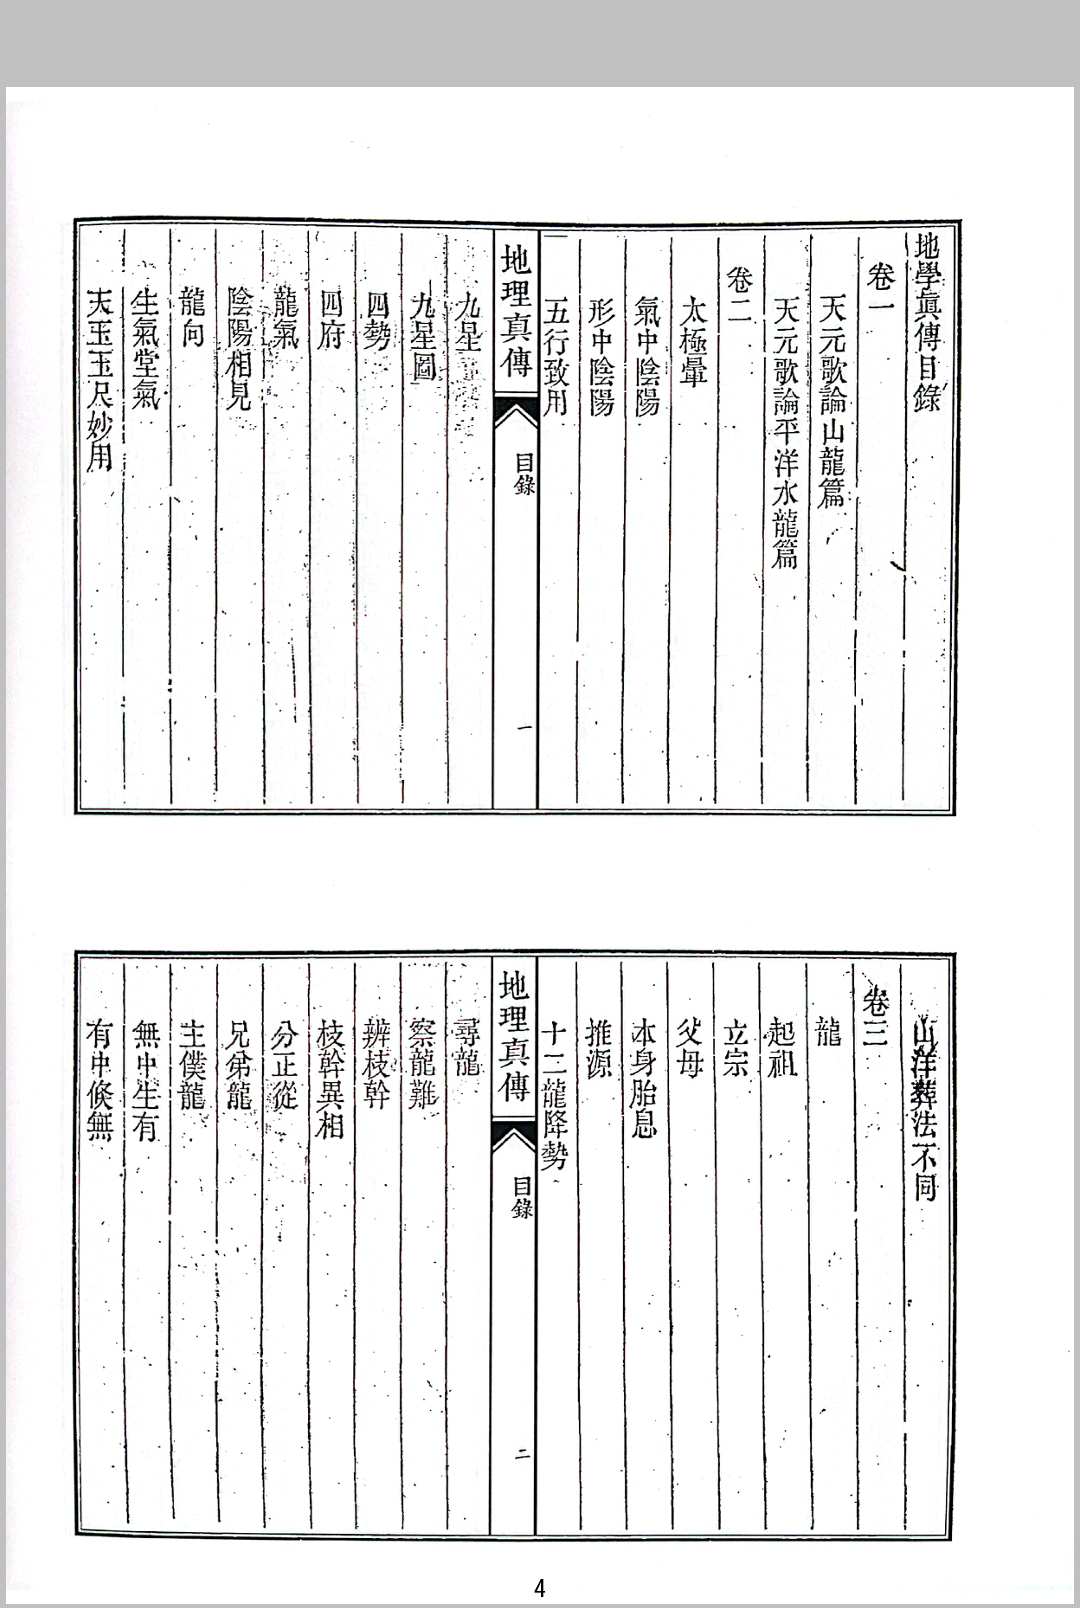 地學眞傳目錄
卷一
天元歌論山龍篇
天元歌論平洋水龍篇
卷二
太極暈
氣中陰陽
形中陰陽
五行致用
地理真傳
目錄
一
九星
九星圖
四勢
四府
龍氣
陰陽相見
龍向
生氣堂氣
天玉玉尺妙用
山洋葬法不同
卷三
龍
起祖
立宗
父母
本身胎息
推源
十二龍降勢
地理真傳
目錄
二
尋龍
察龍難
辨枝幹
枝幹異相
分正從
兄弟龍
主僕龍
無中生有
有中倐無
4